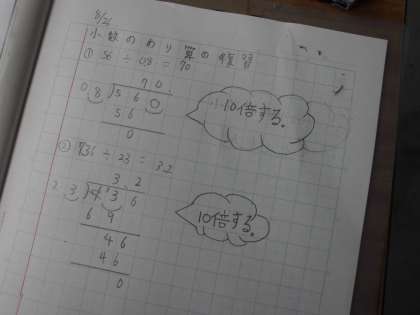 8/21
小数のわり算の復習
① 56 ÷ 0.8 = 70
70
0.8)560
56
0
10倍する。
② 7.36 ÷ 2.3 = 3.2
3.2
2.3)7.36
69
46
46
0
10倍する。